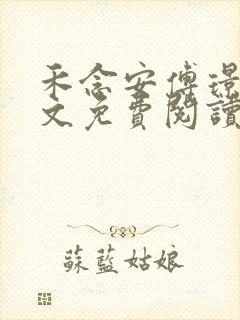 禾念安傅璟
文免費閱讀
蘇藍姑娘